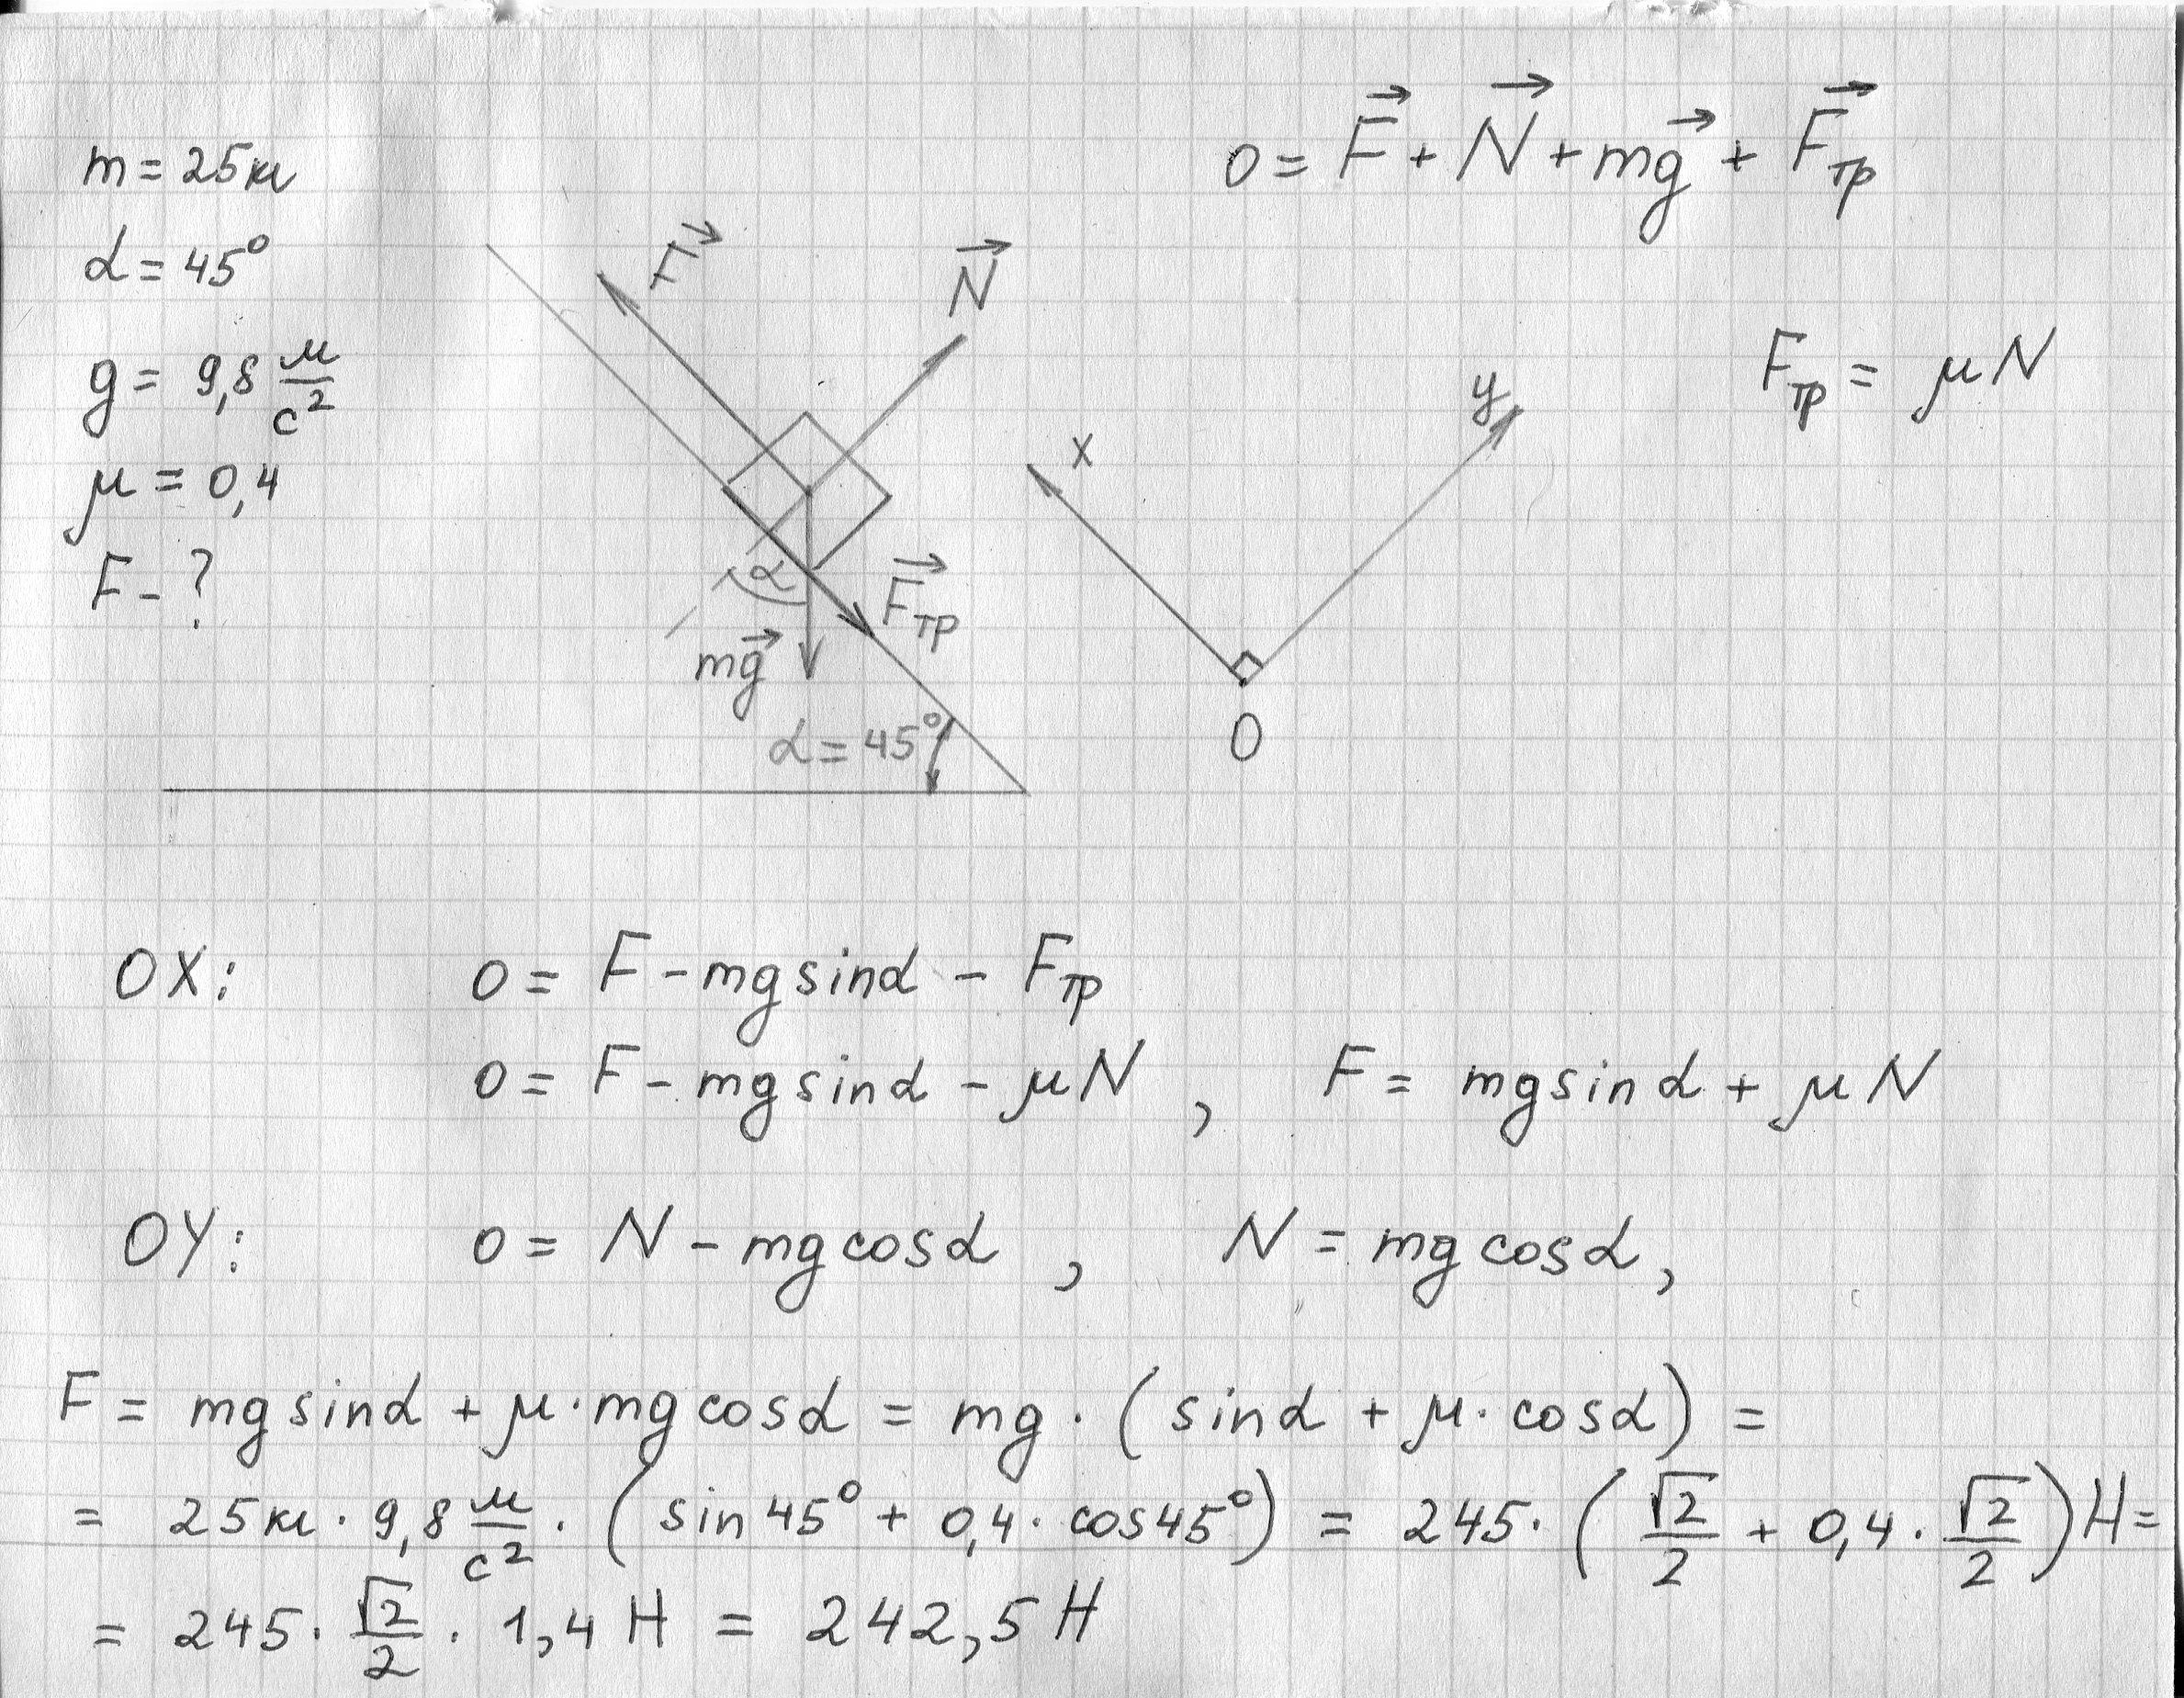 m = 25 кг
α = 45°
g = 9,8 м/с²
μ = 0,4
F - ?
0 = F⃗ + N⃗ + mg⃗ + F⃗тр
Fтр = μN
F⃗
N⃗
α
F⃗тр
mg⃗
α = 45°
x
y
0
OX: 0 = F - mg sinα - Fтр
0 = F - mg sinα - μN , F = mg sinα + μN
OY: 0 = N - mg cosα , N = mg cosα,
F = mg sinα + μ · mg cosα = mg · (sinα + μ · cosα) =
= 25 кг · 9,8 м/с² · (sin 45° + 0,4 · cos 45°) = 245 · (√2/2 + 0,4 · √2/2) Н =
= 245 · √2/2 · 1,4 Н = 242,5 Н